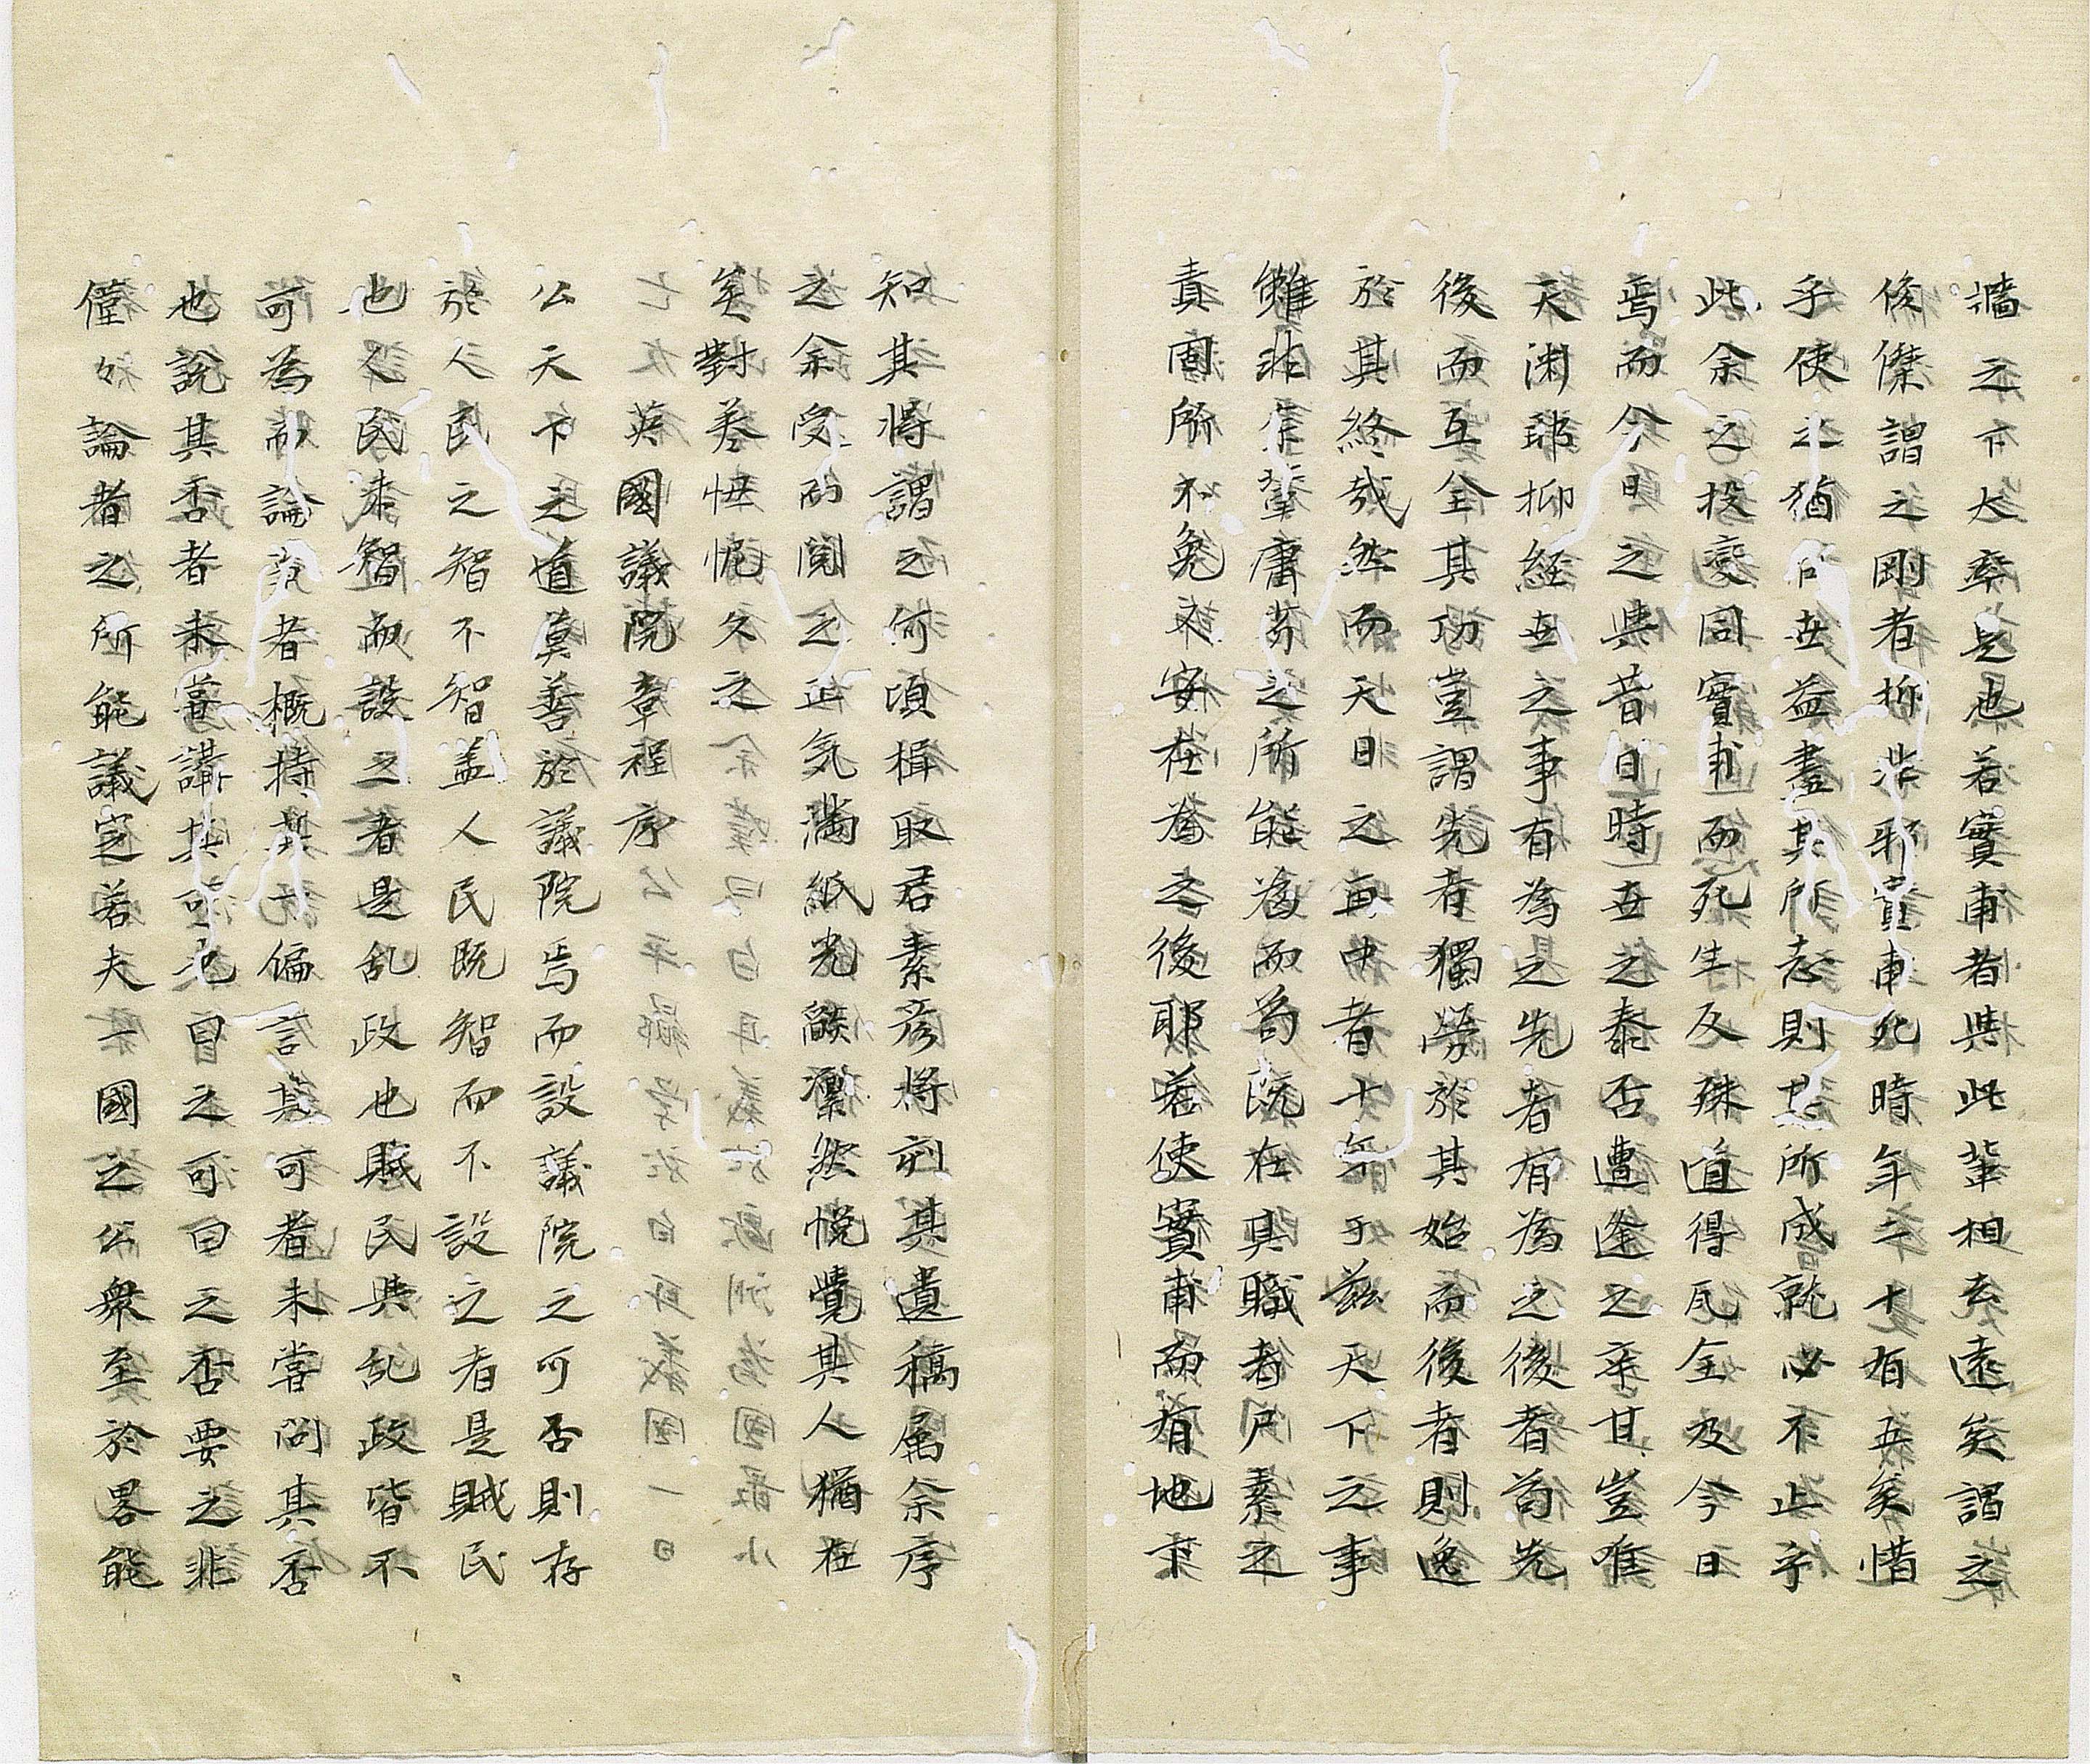 牆之下大率是也若實甫者與此輩相去遠矣謂之
俊傑謂之剛者抑非耶實甫死時年二十有五矣惜
乎使之猶在世益盡其所志則其所成就必不止于
此余之投變同實甫而死生反殊道得瓦全及今日
焉而今日之與昔日時世之泰否遭逢之辛甘豈唯
天渕耶抑經世之事有為之先者有為之後者苟先
後而互全其功豈謂先者獨勞於其始而後者則逸
於其終哉然而天日之再中者十年于茲天下之事
雖非余輩庸劣之所能為而苟既在其職者尸素之
責固所不免又安在為之後耶若使實甫而有地下
知其將謂之何頃楫取君素彦將刻其遺稿属余序
之余受而閲之正気満紙光燄凛然怳覺其人猶在
矣對巻忸怩久之
英國議院章程序
公天下之道莫善於議院焉而設議院之可否則存
於人民之智不智盖人民既智而不設之者是賊民
也人民未智而設之者是乱政也賊民與乱政皆不
可為而論説者概持其一偏言其可者未嘗問其否
也說其否者未嘗講其可也曰之可曰之否要之非
僅々論者之所能議定若夫一國之公衆至於畧能